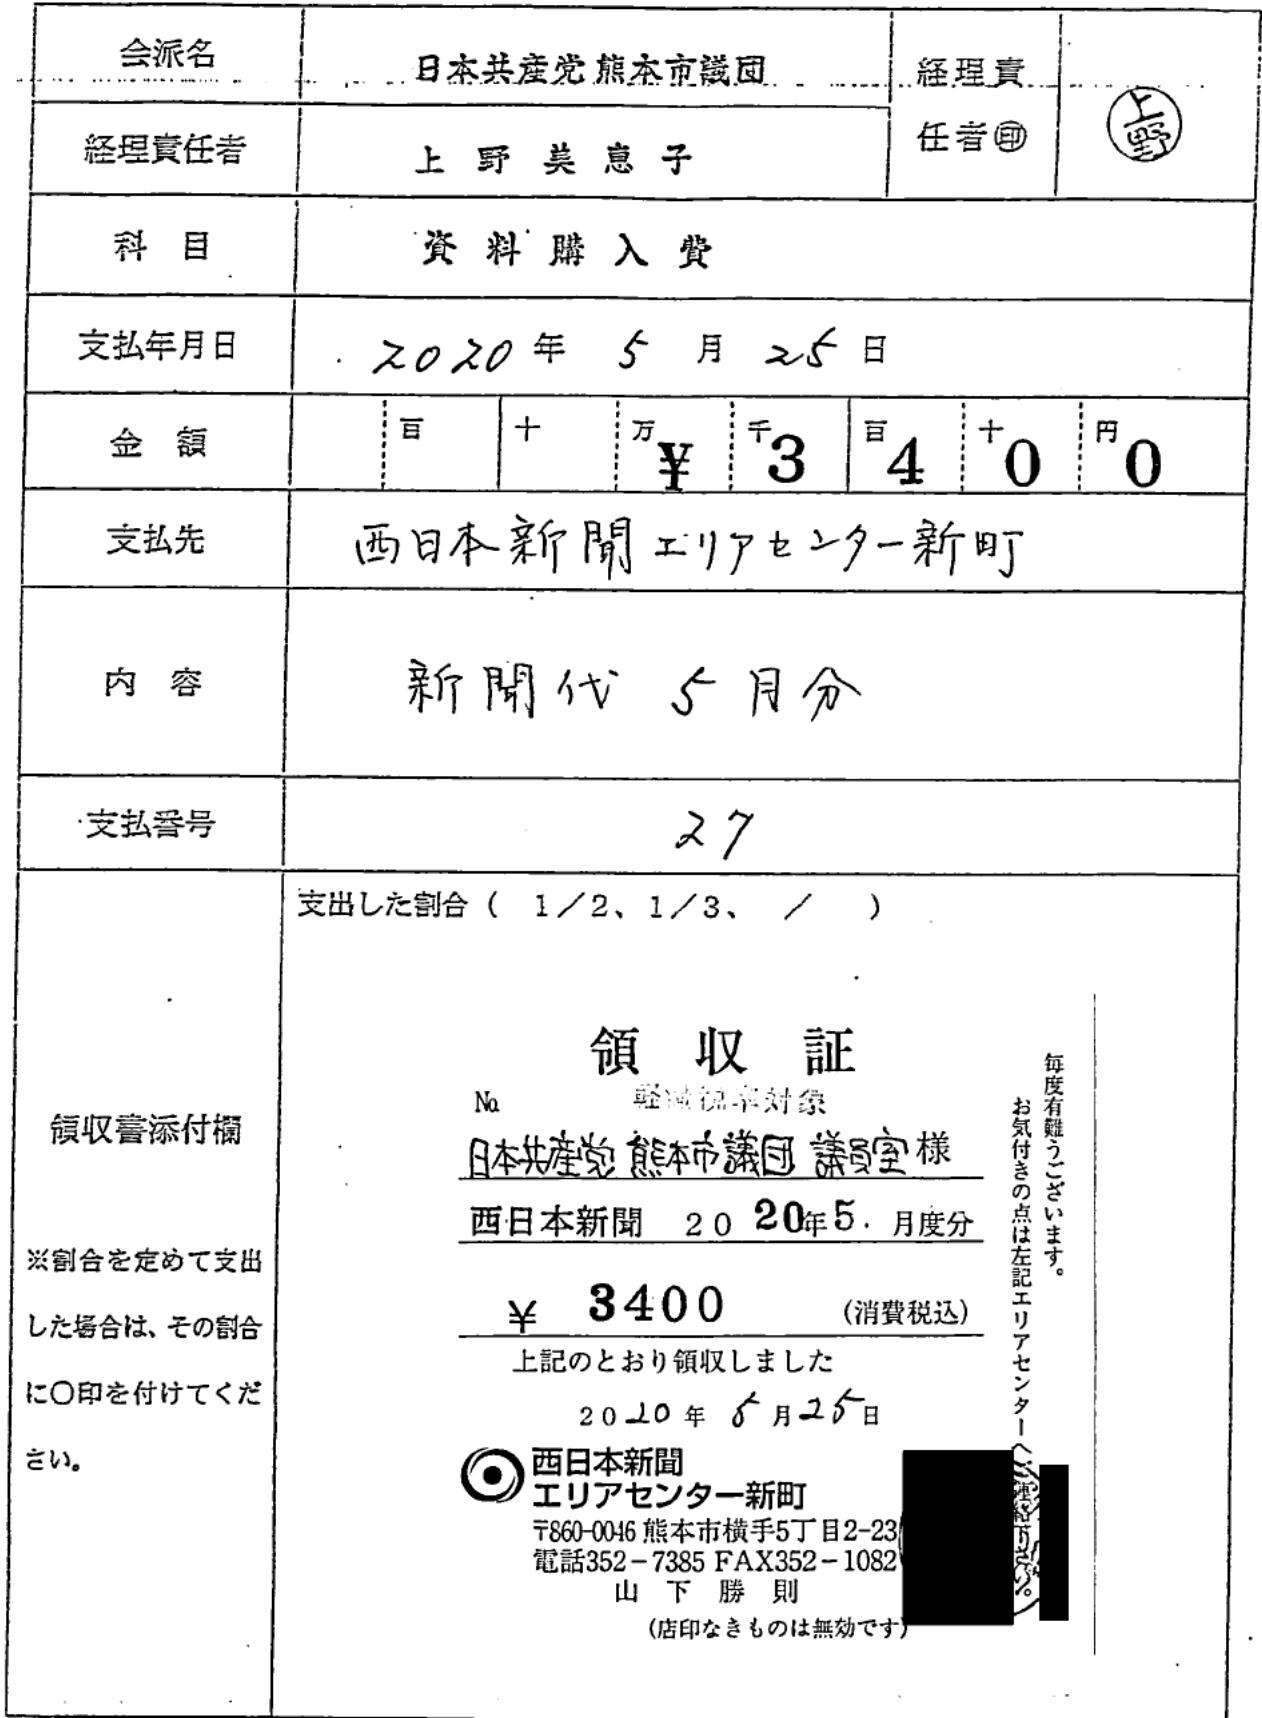 会派名
日本共産党 熊本市議団
経理責
任者㊞
上野
経理責任者
上野美恵子
科目
資料購入費
支払年月日
2020年 5月 25日
金額
百 十 万 千 百 十 円
¥3400
支払先
西日本新聞エリアセンター新町
内容
新聞代 5月分
支払番号
27
支出した割合( 1/2、1/3、 / )
領収書添付欄
※割合を定めて支出
した場合は、その割合
に〇印を付けてくだ
さい。
領収証
No.
軽減税率対象
日本共産党 熊本市議団 議員室様
西日本新聞 2020年5.月度分
¥ 3400 (消費税込)
上記のとおり領収しました
2020年5月25日
西日本新聞
エリアセンター新町
〒860-0046 熊本市横手5丁目2-23
電話352-7385 FAX352-1082
山下勝則
(店印なきものは無効です)
毎度有難うございます。
お気付きの点は左記エリアセンターへご連絡下さい。